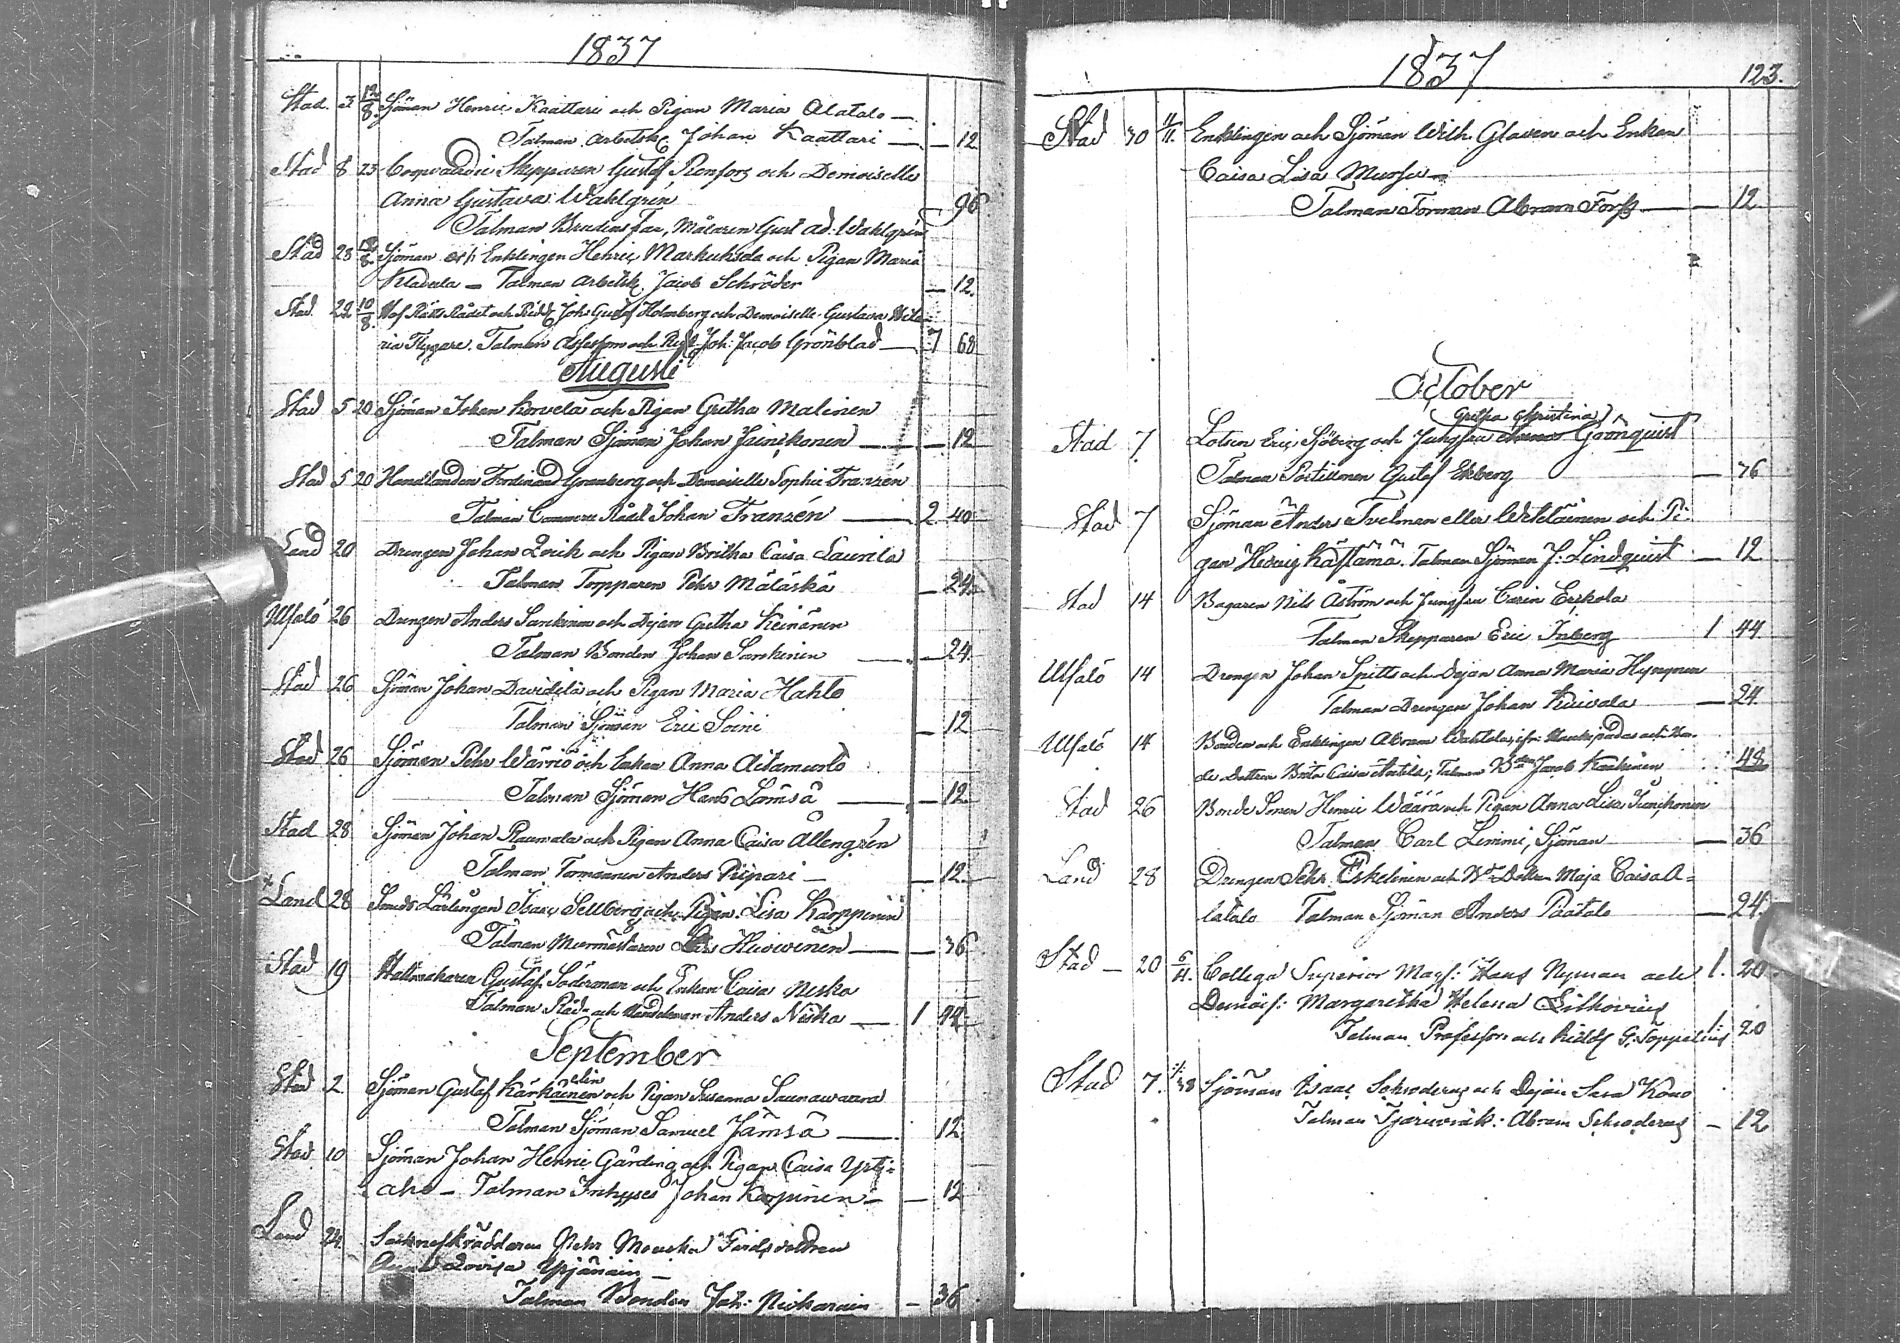 1837
Stad 3 12/8 Sjöman Henric Kaattari och Pigan Maria Alatalo —
Talman Arbetsk Johan Kaattari — — 12
Stad 8 23 Coopvaerdie Skepparen Gustaf Renfors och Demoiselle
Anna Gustava Wahlgrén 96
Talman Brudens far, Målaren Gust. Ad. Wahlgrén
Stad 23 Sjöman och Enklingen Henric Markuksela och Pigan Maria
— Talman Arbetsk. Jacob Schröder — 12.
Stad 22 10/8 Hof Rätts Rådet och Ridd Joh. Gustaf Holmberg och Demoiselle Gustava
ria Flygare. Talman Assessoren och Joh. Jacob Grönblad — 7 68
Augusti
Stad 5 20 Sjöman Johan Korvela och Pigan Gretha Malinen
Talman Sjöman Johan Juinikonen — — 12
Stad 5 20 Handlanden Ferdinand Granberg och Demoiselle Sophie Franzén
Talman Commerce Rådet Johan Franzén — 2 40
Land 20 Drengen Johan och Pigan Britha Caisa Laurila
Talman Topparen Pehr Määttä — 24
Ulfalö 26 Drengen Anders Sarkinen och Dejan Gretha Keinänen
Talman Bonden Johan Sarkinen — — 24.
Stad 26 Sjöman Johan Davidila och Pigan Maria Hahto
Talman Sjöman Eric Soini — 12
Stad 26 Sjöman Pehr Wärriö och Enkan Anna Aitamurto
Talman Sjöman Hans Lämsä — — 12
Stad 28 Sjöman Johan Raumala och Pigan Anna Caisa Allengrén
Talman Formannen Anders Piipari — — 12
Land 28 Smeds Lärlingen Isaac Sellberg och Pigan Lisa Karppinen
Talman Murmästaren Lars Huovinen — — 36
Stad 19 Hattmakaren Gustaf Söderman och Enkan Caisa Niska
Talman Råd- och Handelsman Anders Niska — 1 44
September
Stad 2 Sjöman Gustaf Kärkäinen och Pigan Susanna Saunawaara
Talman Sjöman Samuel Jämsä — 12
Stad 10 Sjöman Johan Henric Gårding och Pigan Caisa Yrtji-
aho — Talman Inhyses Johan Karpinen — — 12
Land 24 Socknesskräddaren Pehr Mouska
Lovisa Ypjänäin —
Talman Bonden Joh: — 36
1837 123.
Stad 30 11/11. Enklingen och Sjöman Wilh. Glaven och Enkan
Caisa Lisa Mursu —
Talman Forman Abram Forss — — 12
October
Gretha Christina
Stad 7 Lotsen Eric Sjöberg och Jungfru Grönquist
Talman Gustaf Ekberg — 76
Stad 7 Sjöman Anders Tvelman eller Witeläinen och Pi-
gan Hedvig Kästämä. Talman Sjöman J. Lindquist — 12
Stad 14 Bagaren Nils Åström och Jungfru Carin Erkola
Talman Skepparen Eric Inberg 1 44
Ulfalö 14 Drengen Johan Spitts och Dejan Anna Maria Hyrynen
Talman Drengen Johan Kuivala — 24
Ulfalö 14 Bonden och Enklingen Abram Wahtola och Bon-
de Dottren Brita Caisa Anttila; Talman Jacob Karhinen 48
Stad 26 Bonde Sonen Henric Wäärä och Pigan Anna Lisa Juinikonen
Talman Carl Limmi, Sjöman — 36
Land 28 Drengen Pehr Eskelinen och Maja Caisa A-
latalo Talman Sjöman Anders Päätalo — 24
Stad — 20 6/11. Collega Superior Mag: Hans Nyman och 1. 20
Demois: Margaretha Helena Lithovius
Talman Professor och Ridd G. Toppelius 1. 20
Stad 7. 38 Sjöman Isaac Schroderus och Dejan Sara Kouo
Talman Abram Schroderus — 12